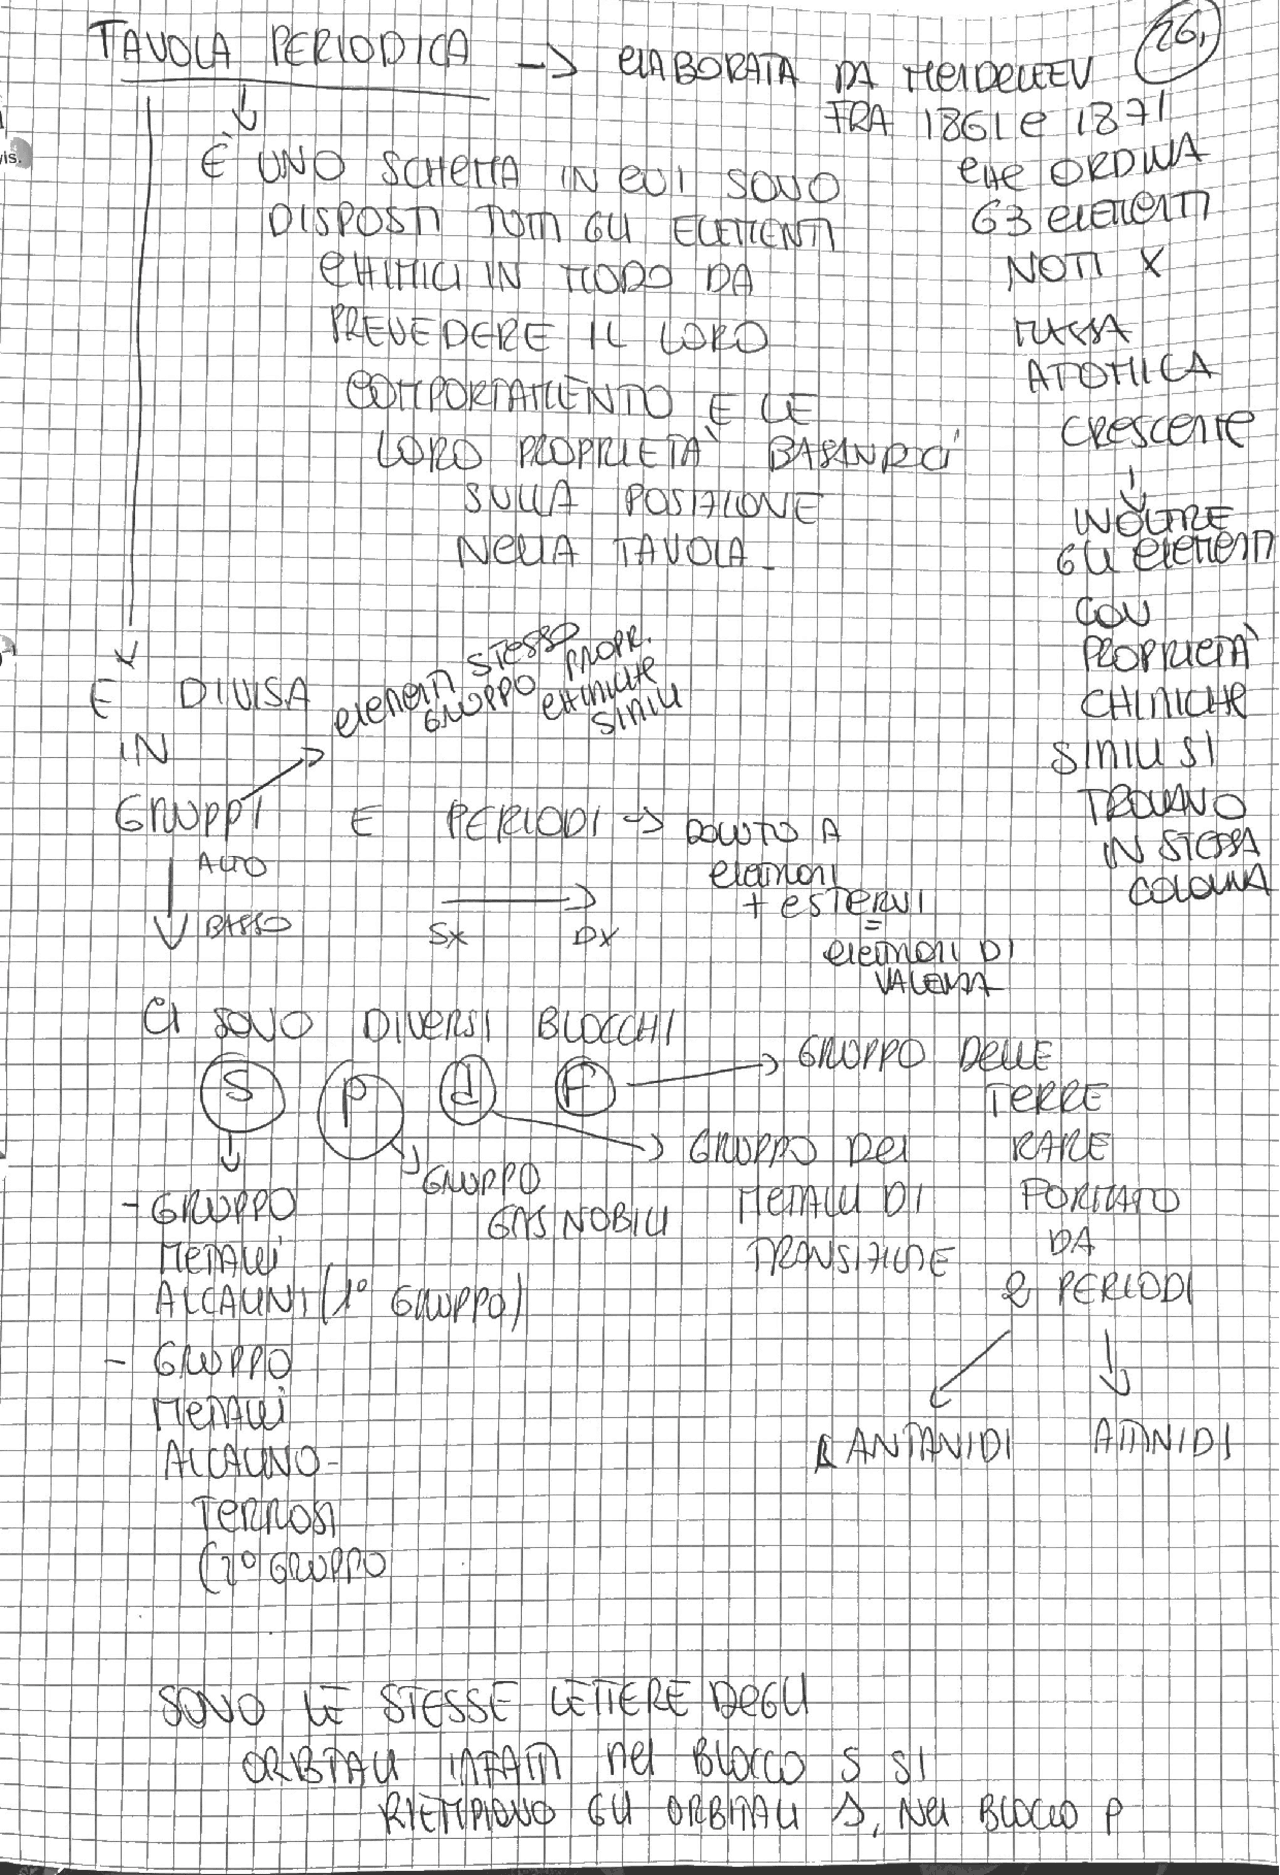 26,
TAVOLA PERIODICA -> ELABORATA DA MENDELEEV
FRA 1861 e 1871
CHE ORDINA
63 ELEMENTI
NOTI X
MASSA
ATOMICA
CRESCENTE
INOLTRE
GLI ELEMENTI
CON
PROPRIETÀ
CHIMICHE
SIMILI SI
TROVANO
IN STESSA
COLONNA
È UNO SCHEMA IN CUI SONO
DISPOSTI TUTTI GLI ELEMENTI
CHIMICI IN MODO DA
PREVEDERE IL LORO
COMPORTAMENTO E LE
LORO PROPRIETÀ BASANDOCI
SULLA POSIZIONE
NELLA TAVOLA.
E DIVISA
IN
ELEMENTI STESSO
GRUPPO PROPR.
CHIMICHE
SIMILI
GRUPPI E PERIODI -> DOVUTO A
ELETTRONI
+ ESTERNI
=
ELETTRONI DI
VALENZA
ALTO
BASSO
SX DX
CI SONO DIVERSI BLOCCHI
S P d F
- GRUPPO
METALLI
ALCALINI (1° GRUPPO)
- GRUPPO
METALLI
ALCALINO-
TERROSI
(2° GRUPPO
GRUPPO
GAS NOBILI
GRUPPO DEI
METALLI DI
TRANSIZIONE
GRUPPO DELLE
TERRE
RARE
FORMATO
DA
2 PERIODI
LANTANIDI ATTINIDI
SONO LE STESSE LETTERE DEGLI
ORBITALI INFATTI NEL BLOCCO S SI
RIEMPIONO GLI ORBITALI S, NEL BLOCCO P